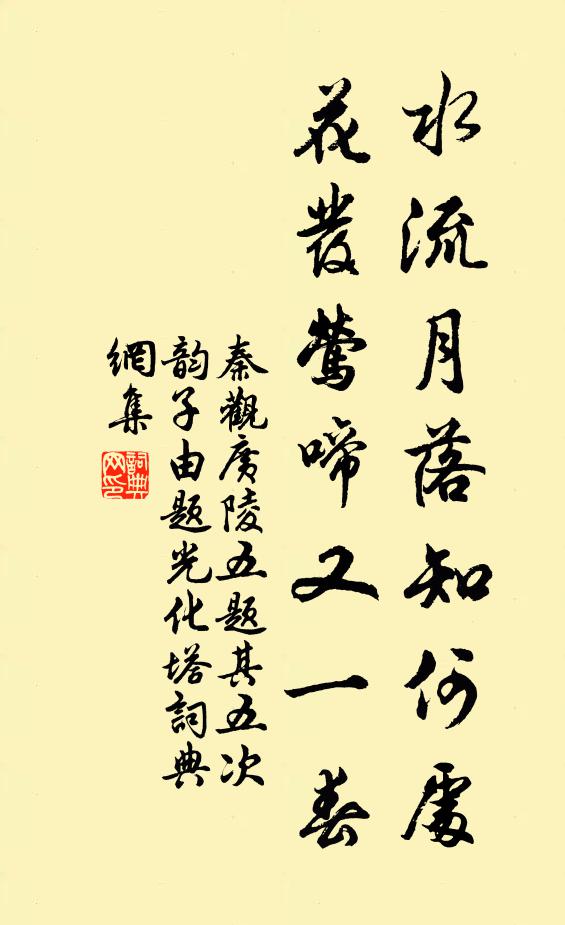 水流月落知何處
花發鶯啼又一春
秦觀廣陵五題其五次
韵子由題光化塔詞典
網集
詞典
网印